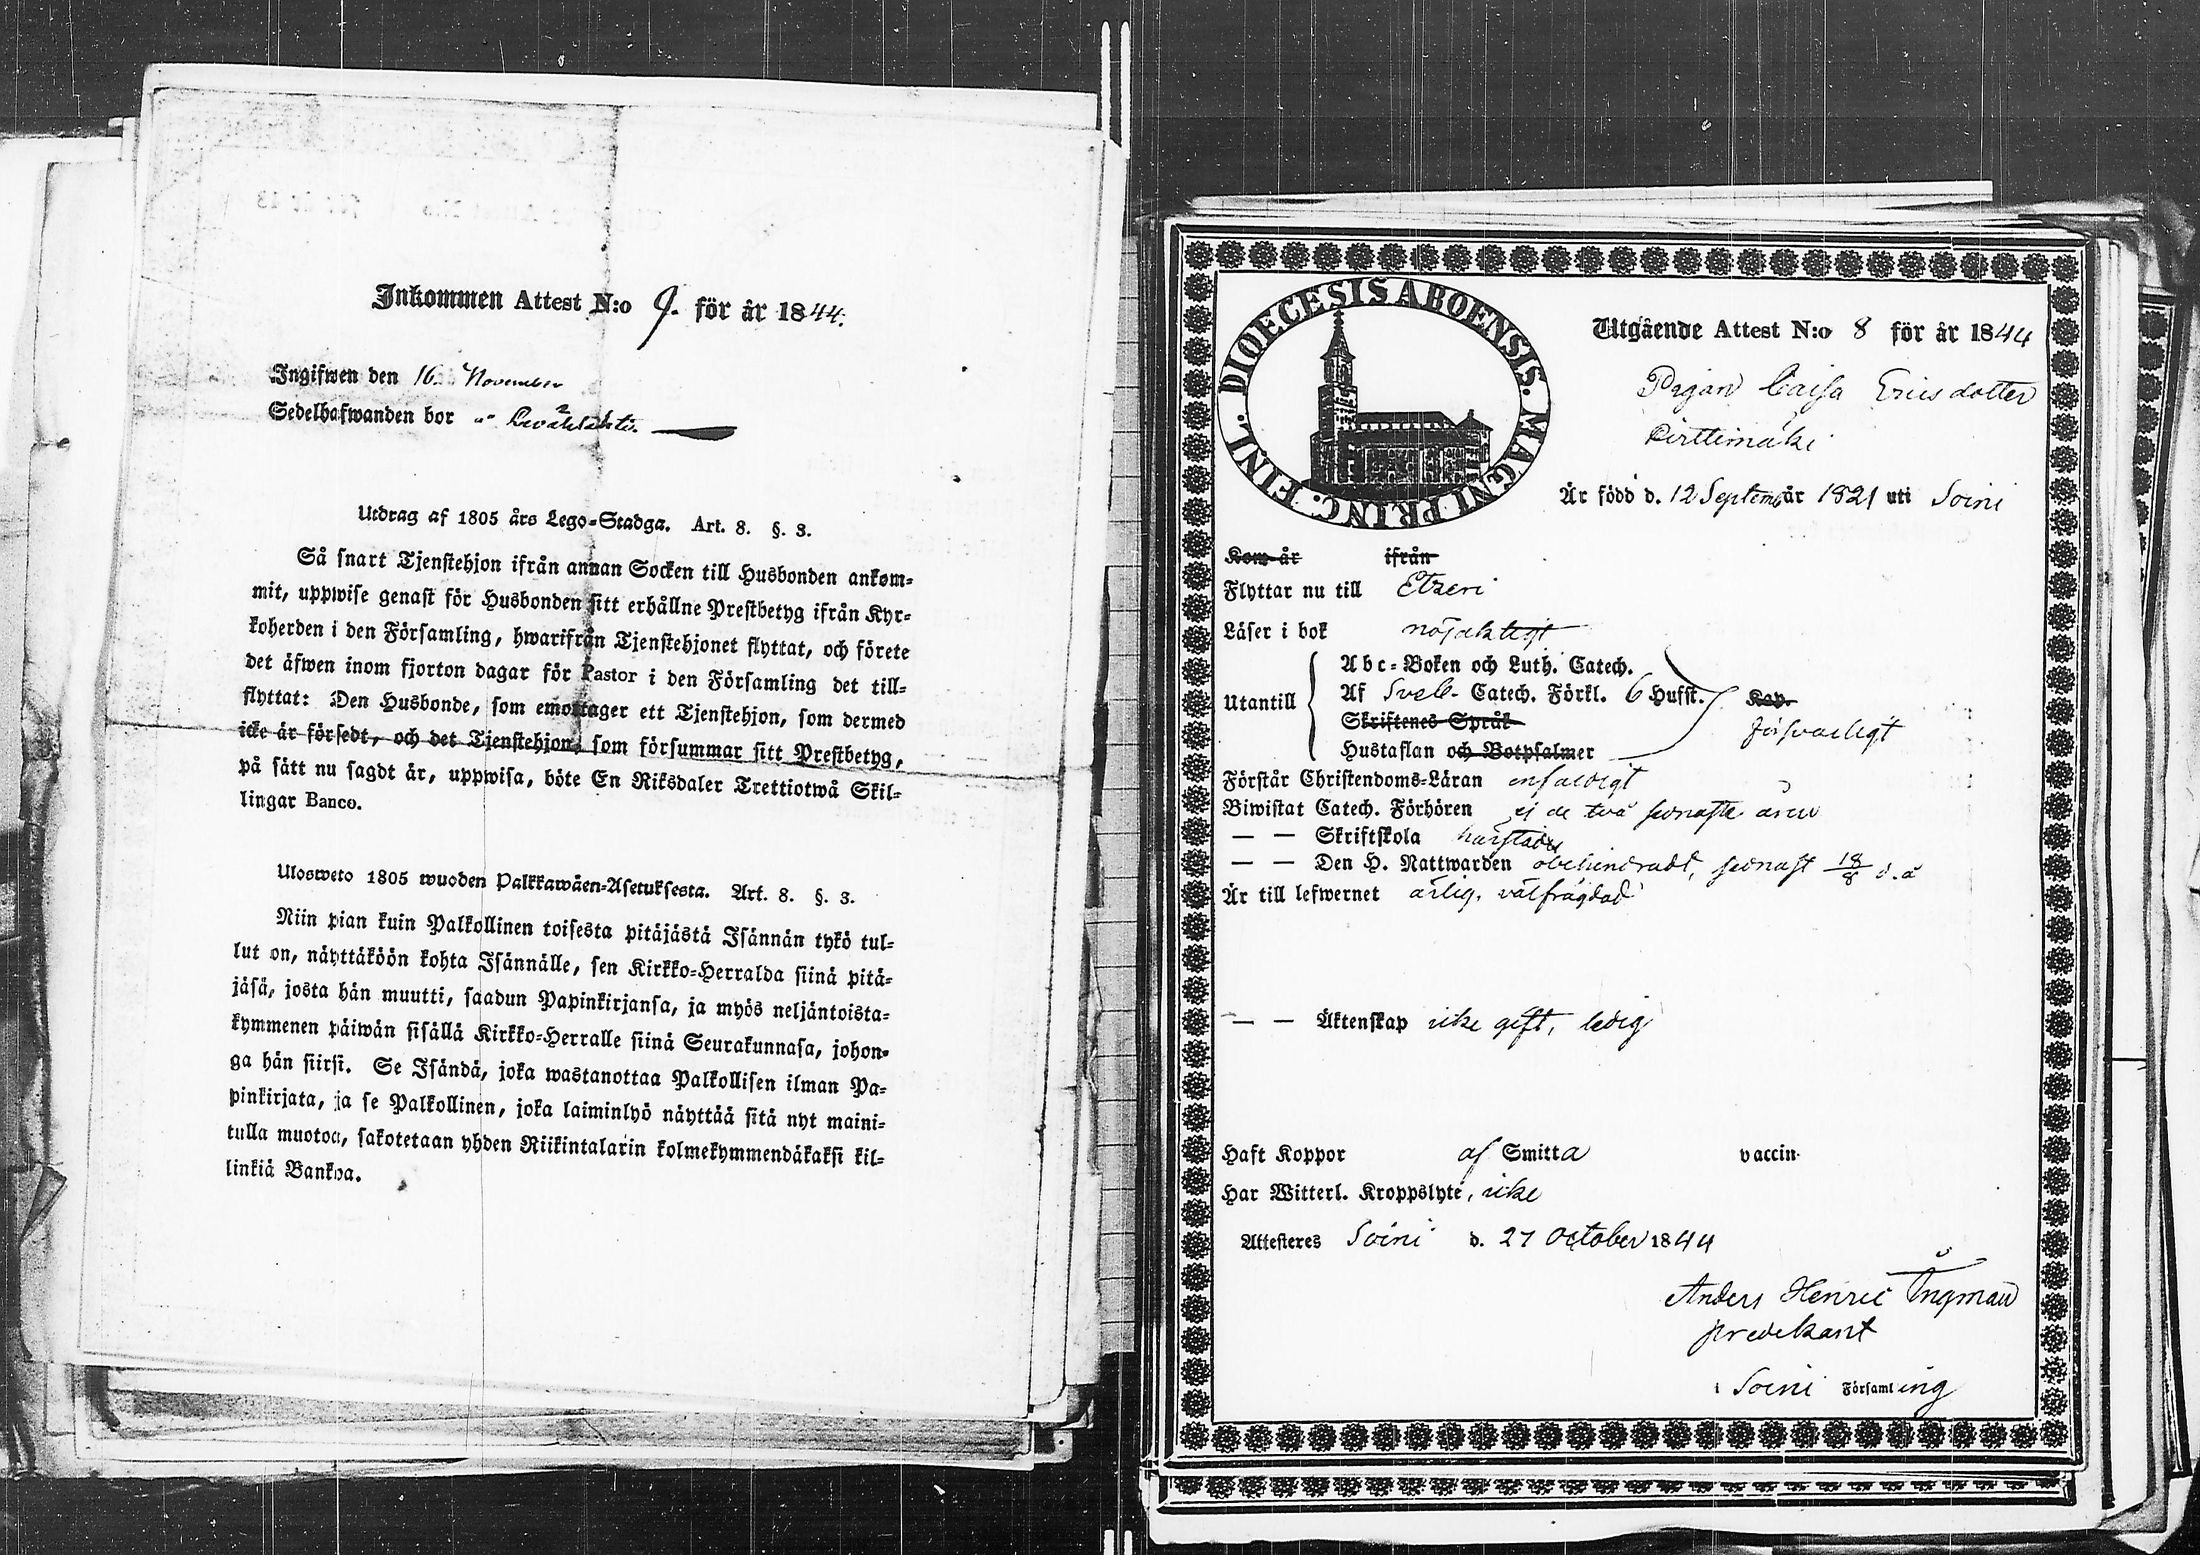 Inkommen Attest N:o 9. för år 1844.
Ingifwen den 16. November
Sedelhafwanden bor
Utdrag af 1805 års Lego-Stadga. Art. 8. §. 3.
Så snart Tjenstehjon ifrån annan Socken till Husbonden ankom-
mit, uppwise genast för Husbonden sitt erhållne Prestbetyg ifrån Kyr-
koherden i den Församling, hwarifrån Tjenstehjonet flyttat, och förete
det äfwen inom fjorton dagar för Pastor i den Församling det till-
flyttat: Den Husbonde, som emottager ett Tjenstehjon, som dermed
icke är försedt, och det Tjenstehjon, som försummar sitt Prestbetyg,
på sätt nu sagdt är, uppwisa, böte En Riksdaler Trettiotwå Skil-
lingar Banco.
Ulosweto 1805 wuoden Palkkawäen-Asetuksesta. Art. 8. §. 3.
Niin pian kuin Palkollinen toisesta pitäjästä Isännän tykö tul-
lut on, näyttäköön kohta Isännälle, sen Kirkko-Herralda siinä pitä-
jäsä, josta hän muutti, saadun Papinkirjansa, ja myös neljäntoista-
kymmenen päiwän sisällä Kirkko-Herralle siinä Seurakunnasa, johon-
ga hän siirsi. Se Isändä, joka wastanottaa Palkollisen ilman Pa-
pinkirjata, ja se Palkollinen, joka laiminlyö näyttää sitä nyt maini-
tulla muotoa, sakotetaan yhden Riikintalarin kolmekymmendäkaksi kil-
linkiä Bankoa.
DIOECESIS ABOENSIS. MAGNI PRINC. FINL.
Utgående Attest N:o 8 för år 1844
Pigan Caisa Ericsdotter
Pirttimäki
Är född d. 12 Septemb år 1821 uti Soini
Kom år ifrån
Flyttar nu till Etseri
Läser i bok nöjaktigt
Utantill
Abc-Boken och Luth. Catech.
Af Sveb. Catech. Förkl. 6 Hufst. Kap.
Skriftenes Språk
Hustaflan och Botpsalmer
försvarligt
Förstår Christendoms-Läran enfaldigt
Biwistat Catech. Förhören ej de två senaste åren
— — Skriftskola
— — Den H. Nattwarden obehindradt, senast 18/8 d.å
Är till lefwernet ärlig, välfrägdad
— — Äktenskap icke gift, ledig
Haft Koppor af Smitta vaccin
Har Witterl. Kroppslyte, icke
Attesteres Soini d. 27 October 1844
Anders Henric Ingman
predikant
i Soini Församling